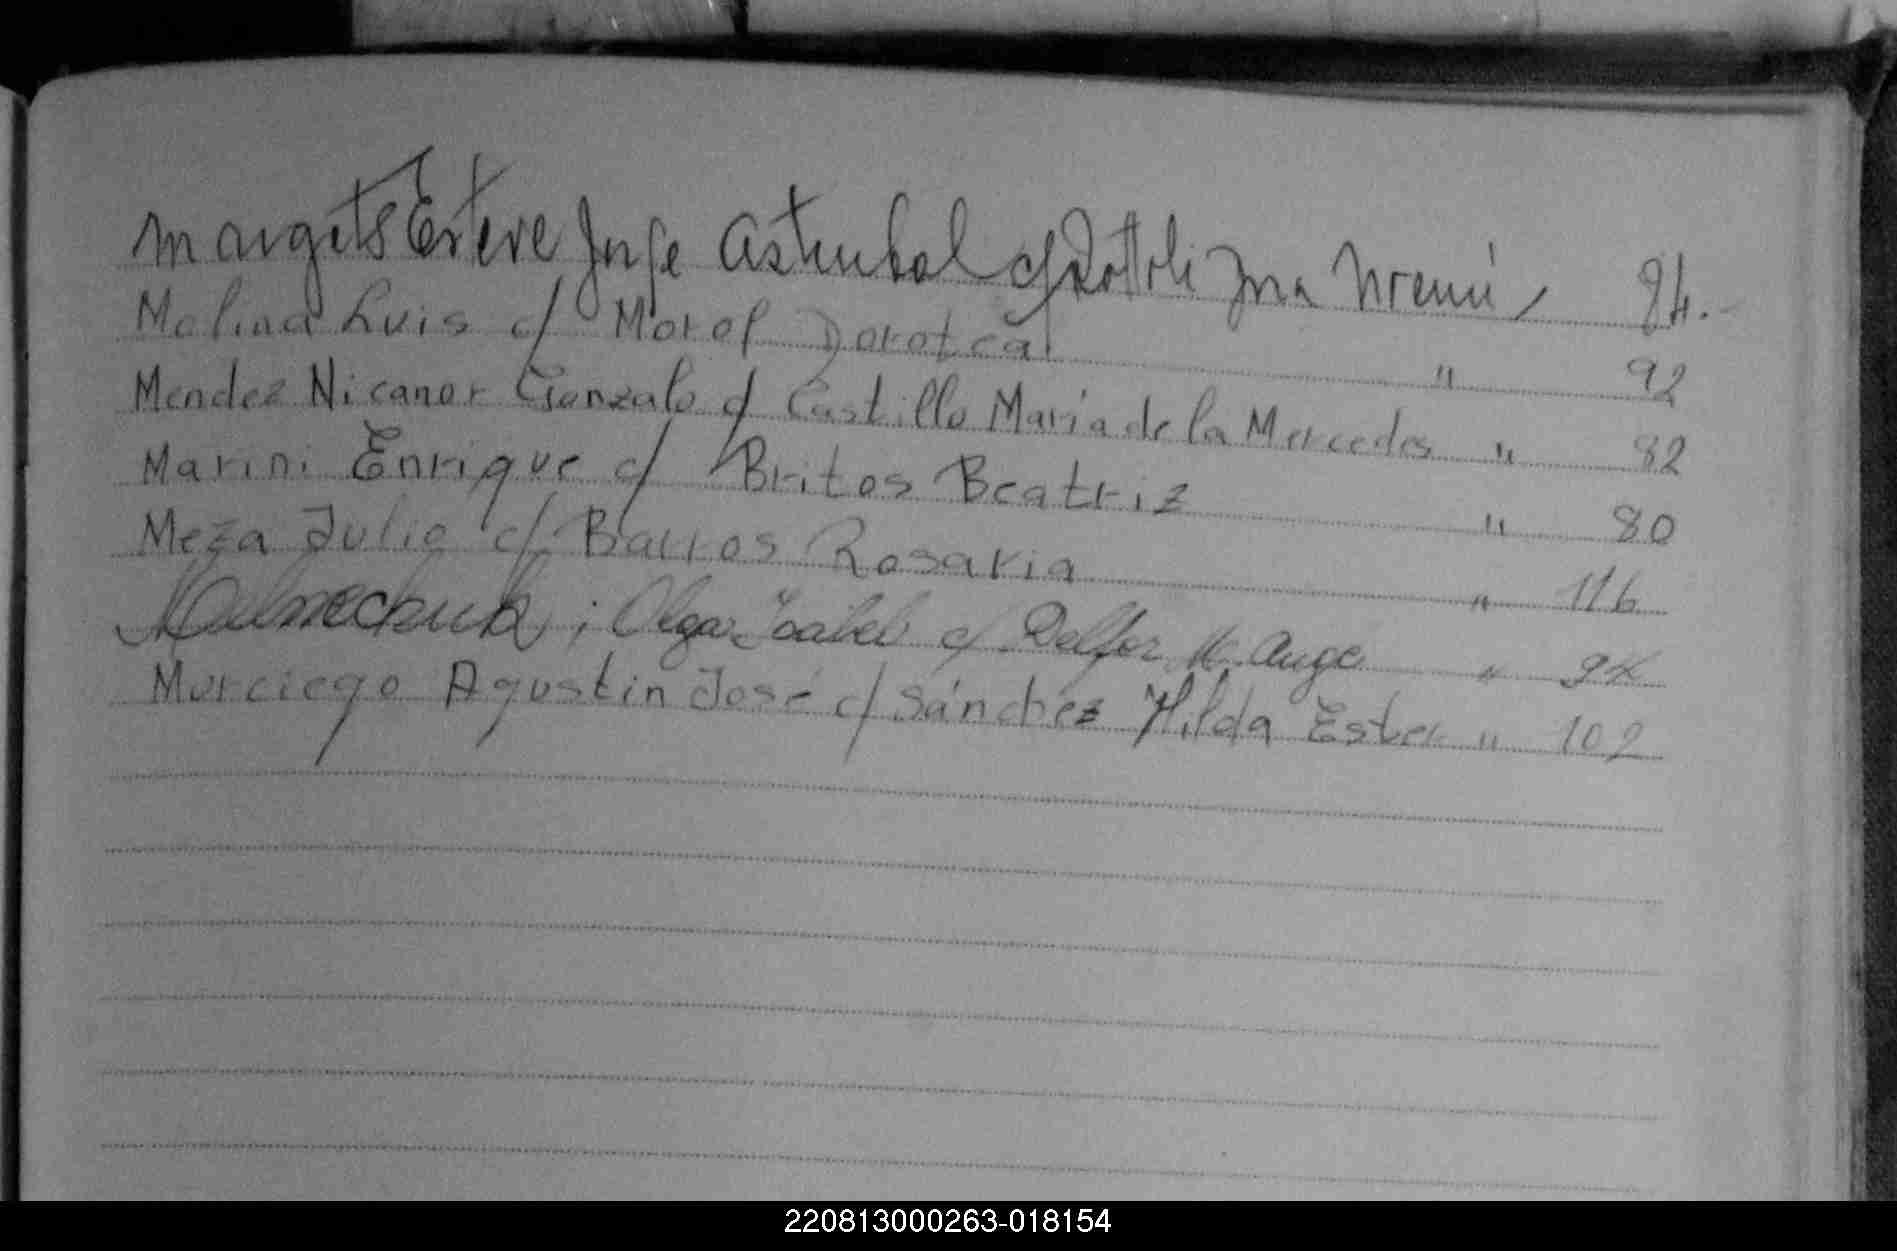 Margets Esteve Jorge c/ Ina 84.-
Molina Luis c/ Morel Dorotea " 92
Mendez Nicanor Gonzalo c/ Castillo María de la Mercedes " 82
Marini Enrique c/ Britos Beatriz " 80
Meza Julio c/ Barros Rosaria " 116
Olga Isabel c/ Delfor M. Ange "
Murciego Agustín José c/ Sánchez Hilda Ester " 102
220813000263-018154